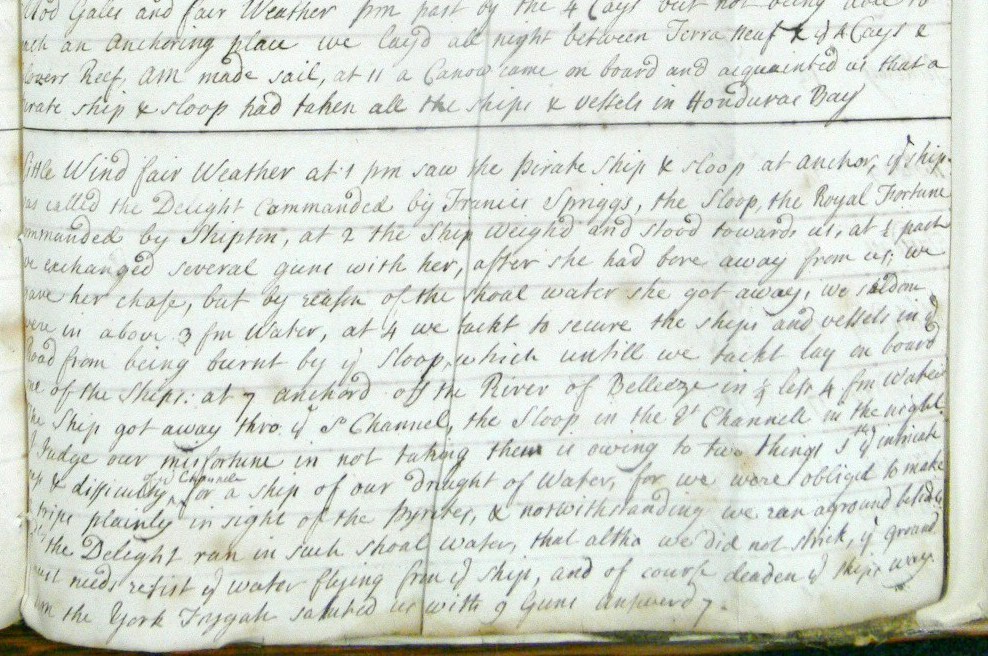 Gales and fair Weather pm past by the 4 Cays but not being able to
an Anchoring place we lay'd all night between Terra Neuf & ye 4 Cays &
Reef, AM made sail, at 11 a Canow came on board and acquainted us that a
irate ship & sloop had taken all the ships & vessels in Honduras Bay
ittle Wind fair Weather at 1 pm saw the Pirate Ship & sloop at anchor, ye ship
as called the Delight Commanded by Francis Spriggs, the Sloop, the Royal Fortune
ommanded by Shipton, at 2 the Ship weigh'd and stood towards us, at ½ past
we exchanged several guns with her, after she had bore away from us; we
ave her chase, but by reason of the shoal water she got away, we seldom
were in above 3 fm Water, at 4 we tackt to secure the ships and vessels in ye
Road from being burnt by ye Sloop, which untill we tackt lay on board
one of the Ships: at 7 anchord off the River of Belleeze in ¼ less 4 fm Water
The Ship got away thro ye So Channel, the Sloop in the Channell in the night
I Judge our misfortune in not taking them is owing to two things 1st ye intricate
& difficulty of ye Channell for a ship of our draught of Water, for we were obliged to make
trips plainly in sight of the Pyrates, & notwithstanding we ran aground
the Delight ran in such shoal water, that altho we did not strick, ye ground
must needs resist ye water flying from ye Ship, and of course deaden ye ships way.
the York Frygat saluted us with 9 Guns answerd 7.